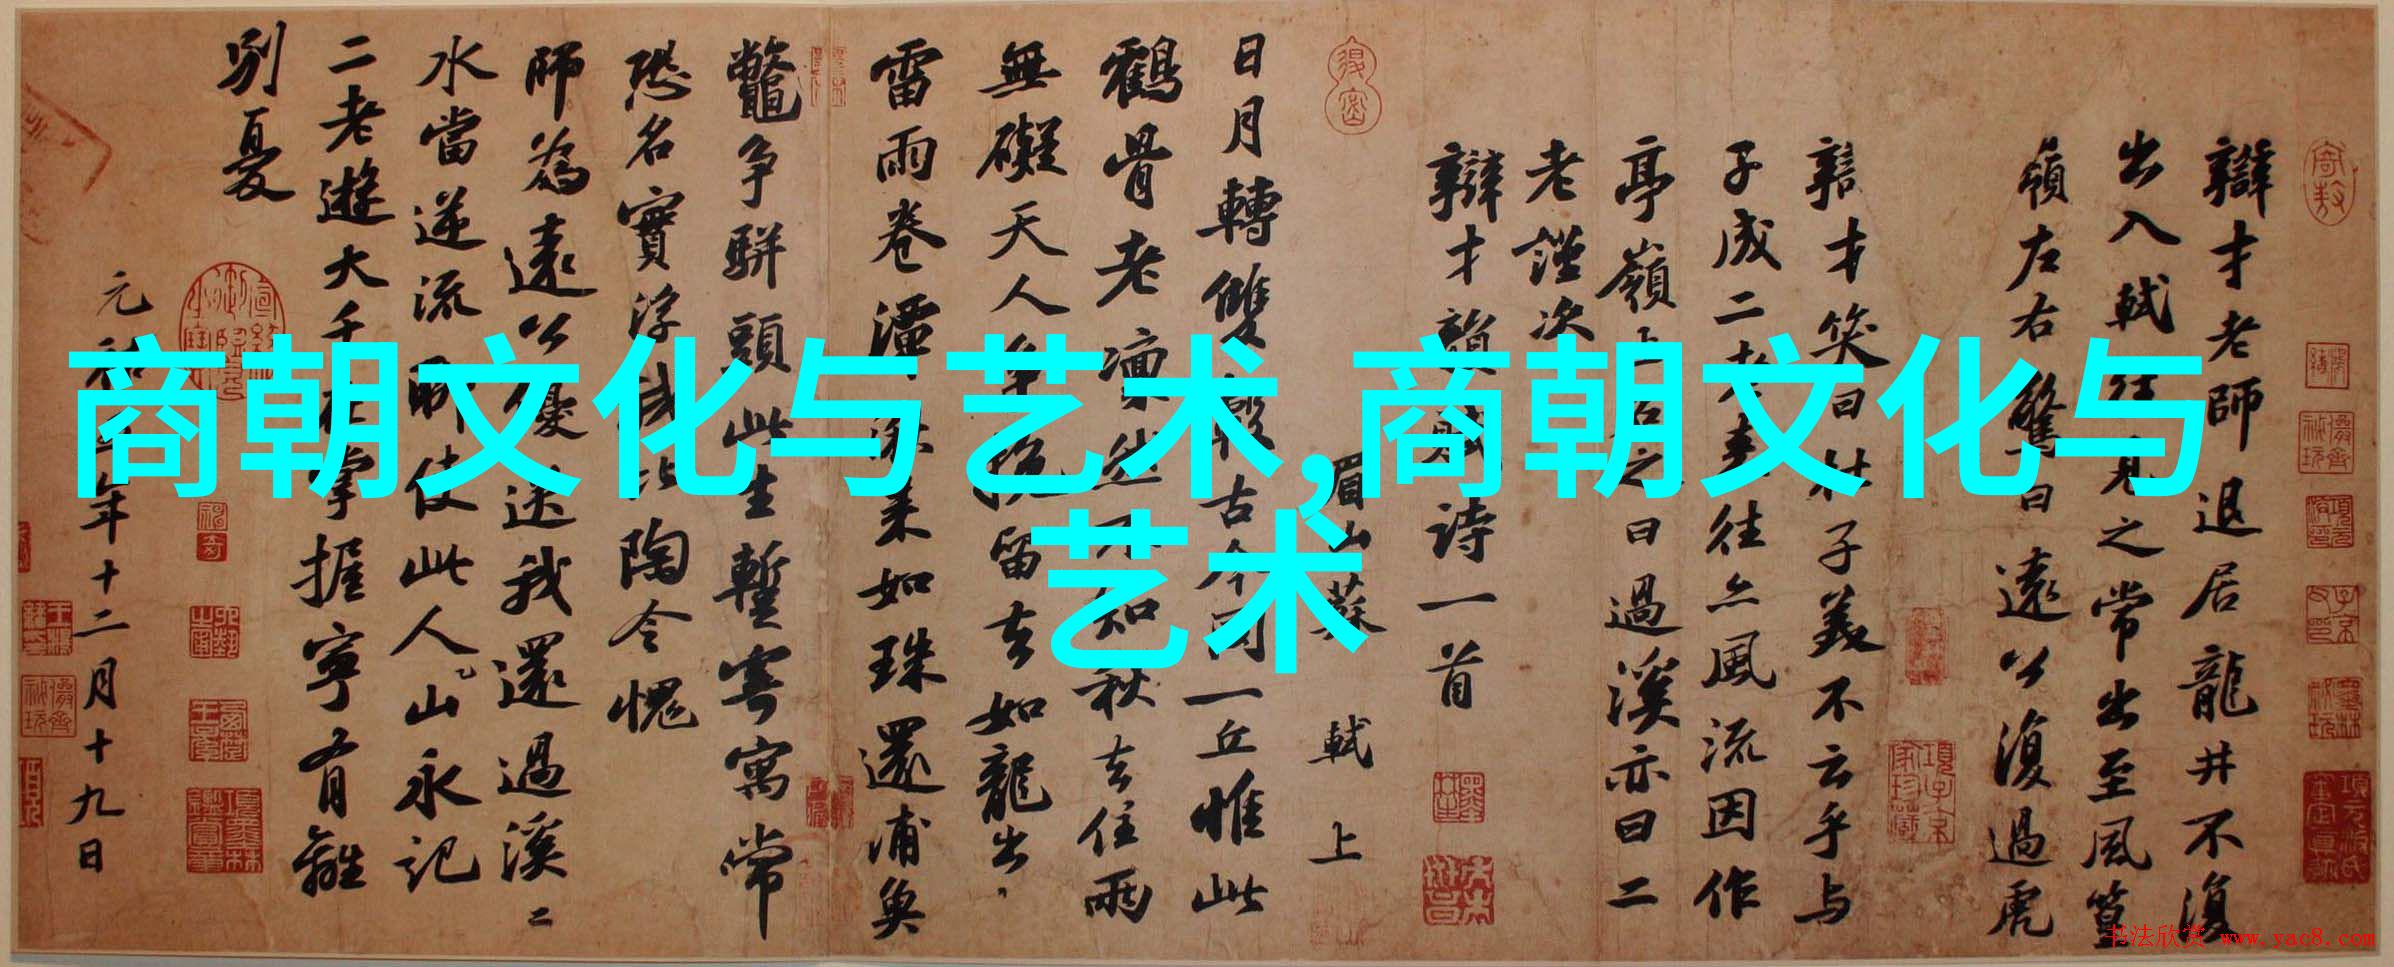 辯才老師退居龍井不復
出入軾往見之常出至風篁
嶺左右驚曰遠公復過虎
辯才笑曰杜子美不云乎與
子成二老來往亦風流因作
亭嶺上名之曰過溪亦曰二
老謹次
辯才韻賦詩一首
眉山蘇軾上
日月轉雙轂古今同一丘惟此
鶴骨老凜然不知秋去住兩
無礙天人爭挽留去如龍出
雷雨卷潭湫來如珠還浦魚
鼈爭駢頭此生暫寄寓常
恐名實浮我比陶令愧
師為遠公優送我還過溪二
水當逆流聊使此人山永記
二老遊大千在掌握寧有離
別憂
元祐五年十二月十九日
商朝文化与艺术,商朝文化与
艺术
书法欣赏 www.yac8.com